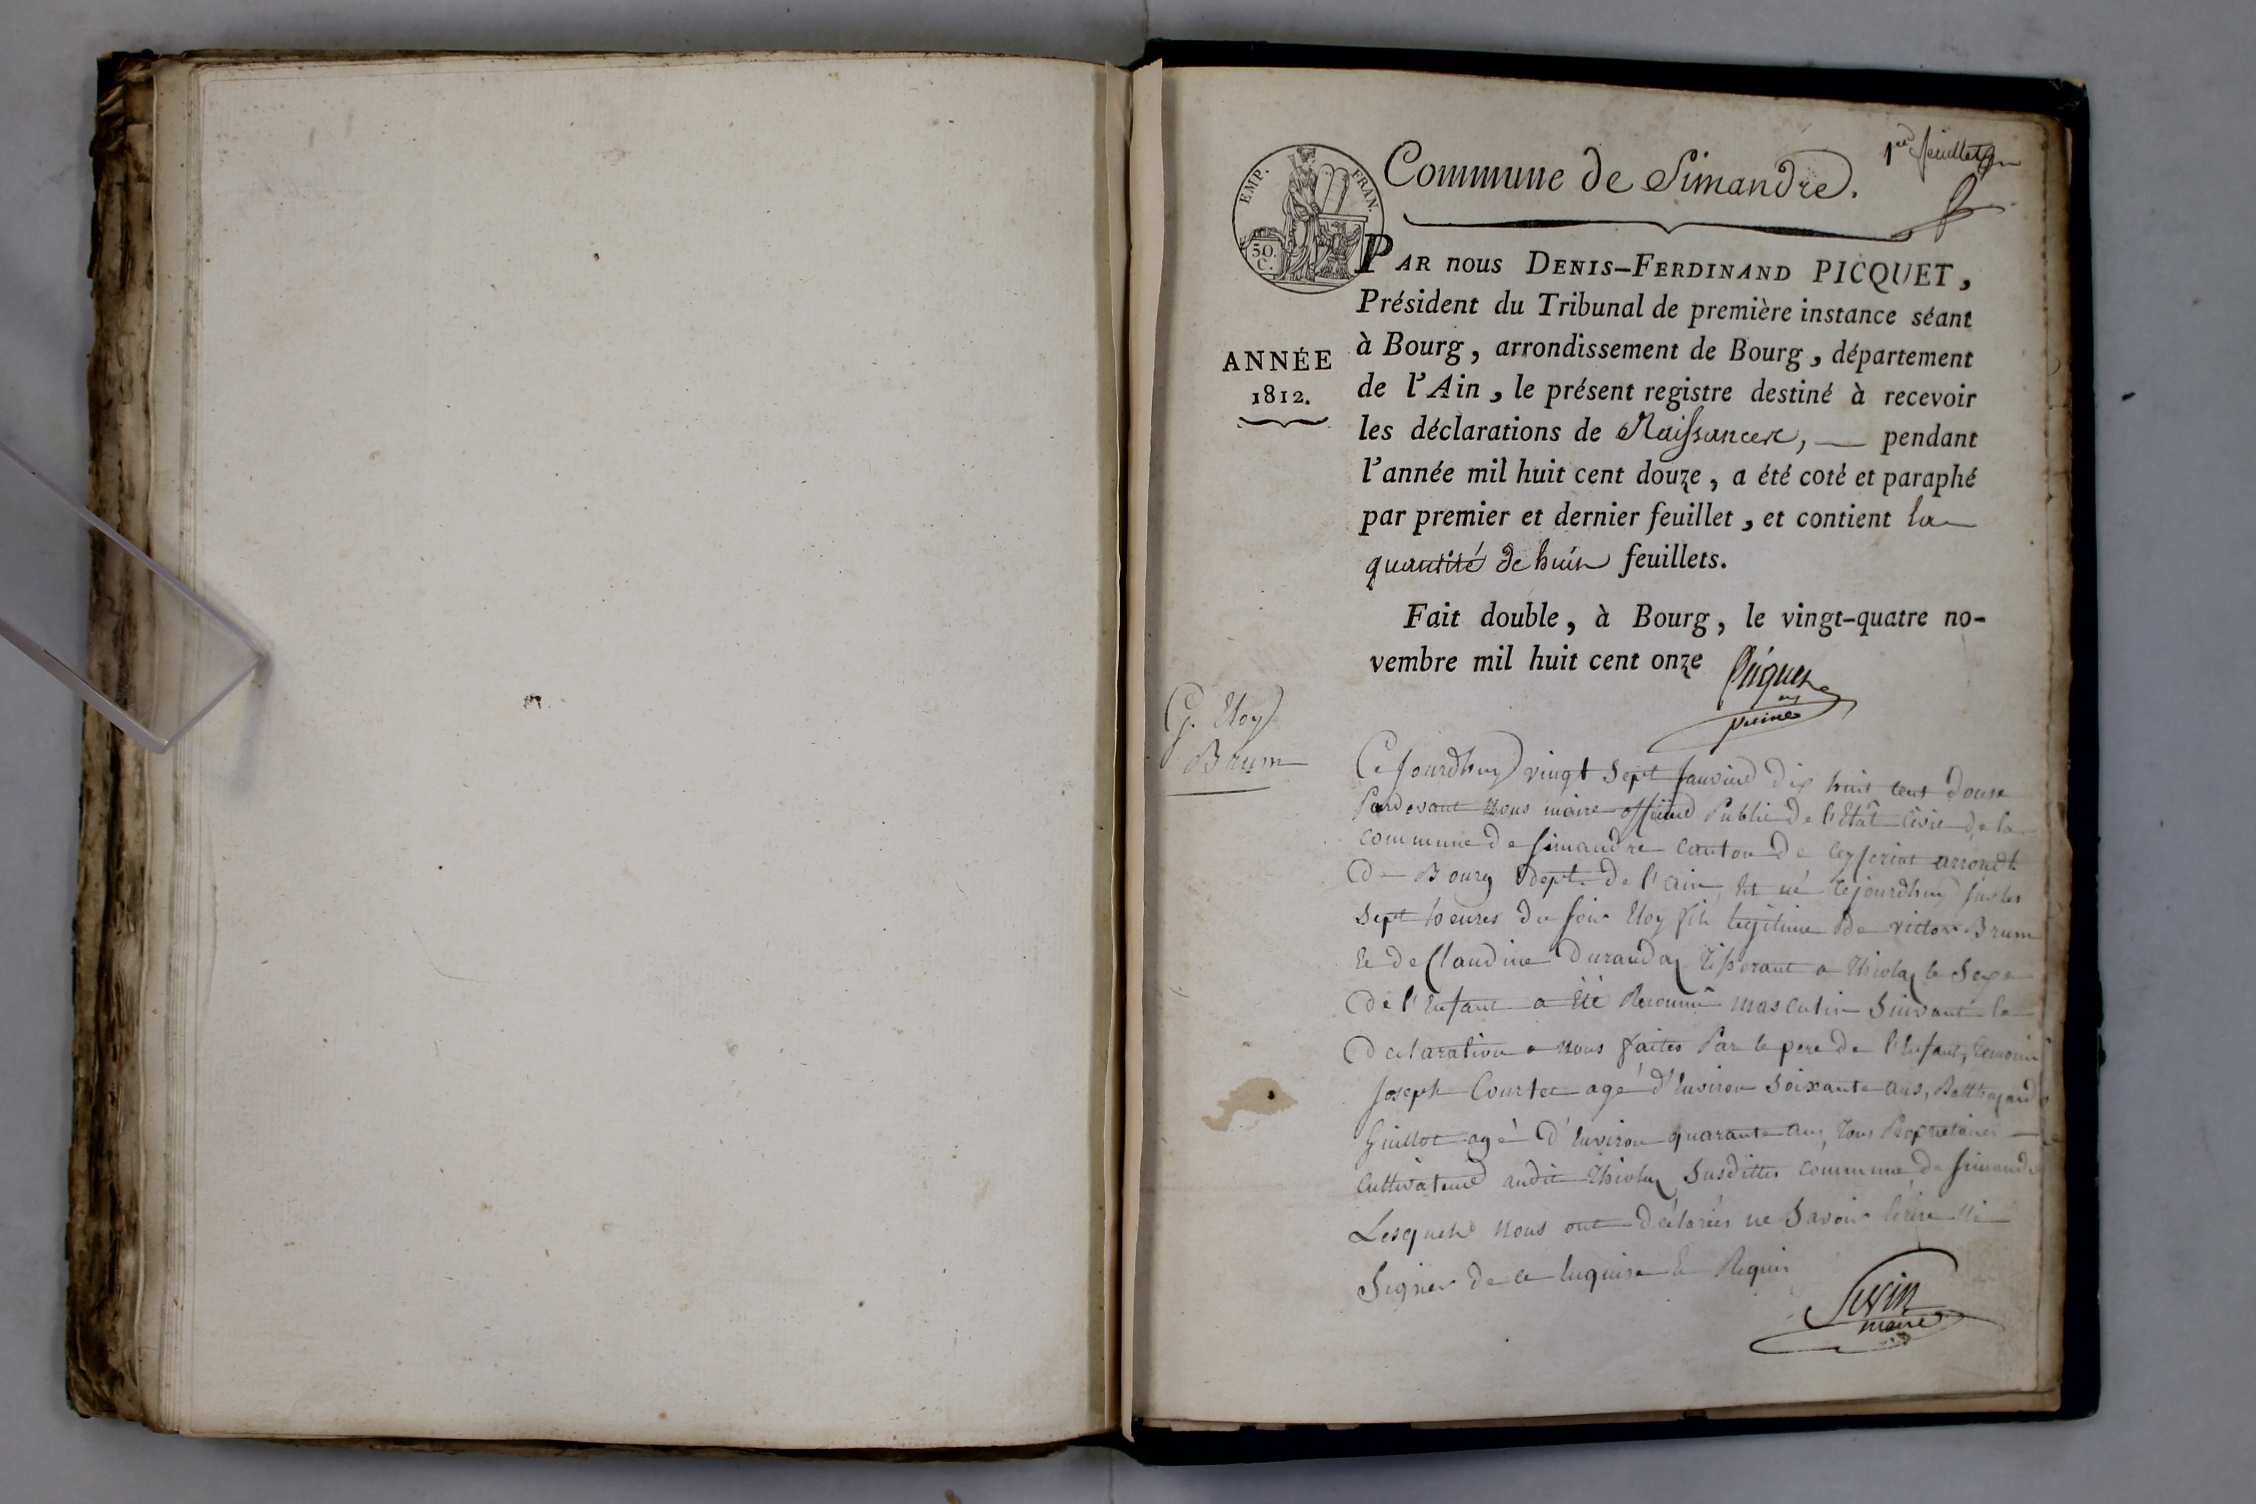 1er feuillet
Commune de Simandre.
EMP. FRAN.
50. C.
PAR nous DENIS-FERDINAND PICQUET,
Président du Tribunal de première instance séant
à Bourg, arrondissement de Bourg, département
de l'Ain, le présent registre destiné à recevoir
les déclarations de Naissances, — pendant
l'année mil huit cent douze, a été coté et paraphé
par premier et dernier feuillet, et contient la
quantité de huit feuillets.
ANNÉE
1812.
Fait double, à Bourg, le vingt-quatre no-
vembre mil huit cent onze
Picquet
G. Eloy
Brum
Ce jourdhuy vingt Sept Janvier dix huit cent douse
Pardevant Nous maire officier Public de l'Etât Civil de la
commune de Simandre Canton de Ceyseriat arrondt
de Bourg dept. de l'ain, Est né Cejourdhuy sur les
sept heures du soir Eloy fils legitime de victor Brum
Et de Claudine Duranday Tisserant a Thiolay le Sexe
de l'Enfant a Eté Reconnu masculin Suivant la
declaration a nous faites Par le pere de l'Enfant, temoins
Joseph Courtet agé d'Environ Soixante ans, Balthazard
Guillot agé d'Environ quarante ans, tous Proprietaires
Cultivateurs audit Thiolay Susdittes Commune de Simandre
Lesquels nous ont déclarées ne Savoir Ecrire Ni
Signer de ce Enquise Et Requis
maire